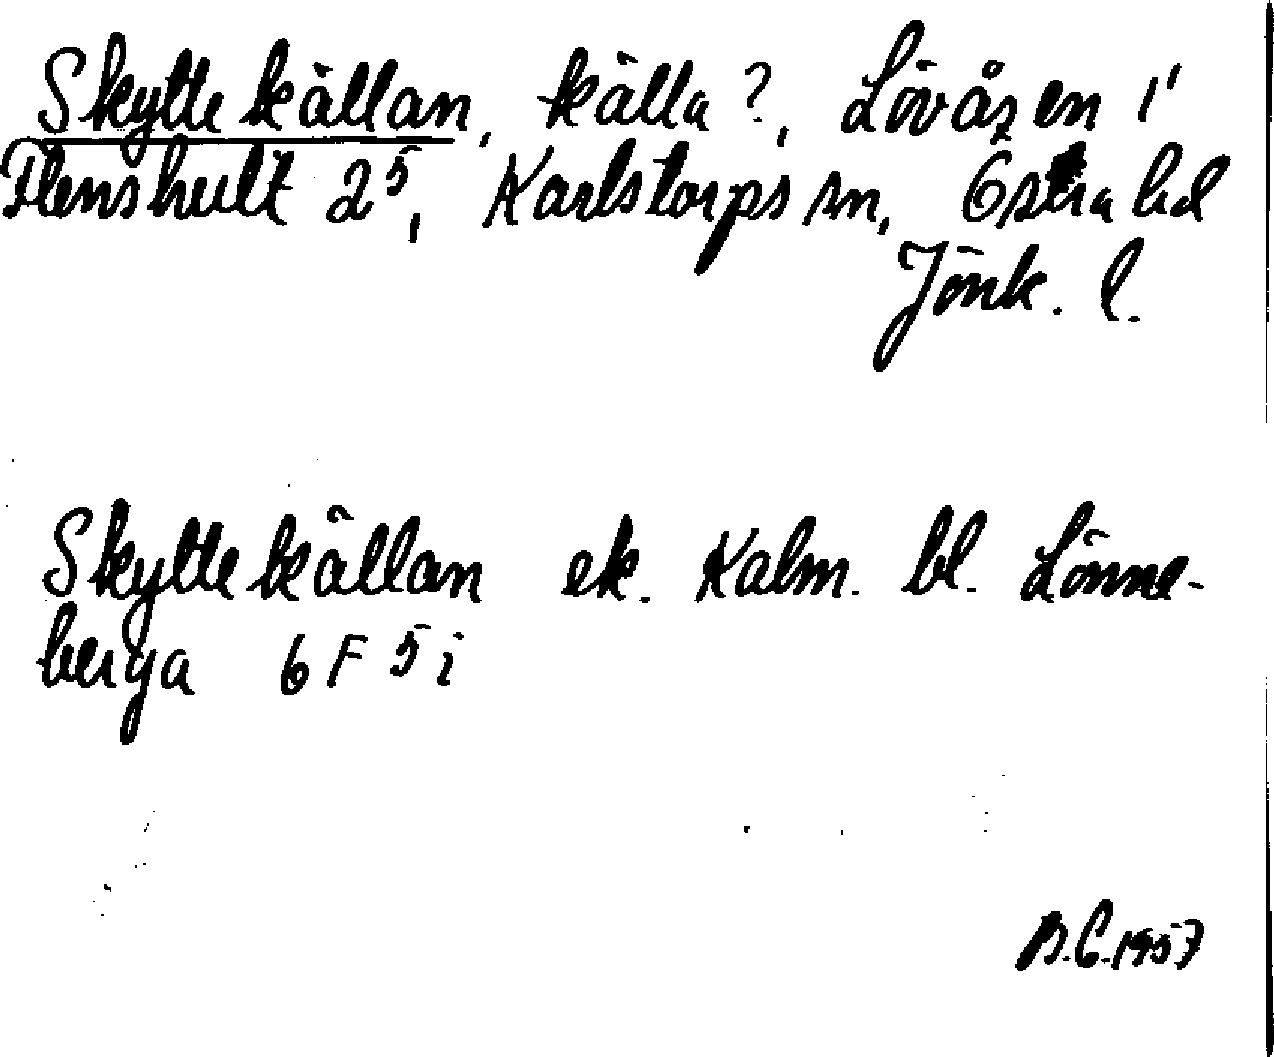 Skyttekällan, källa?, Lövåsen 1'
Flenshult 2⁵, Karlstorps sn, Östra hd
Jönk. l.
Skyttekällan ek. Kalm. bl. Lönne-
berga 6F 5i
B.E. 1957